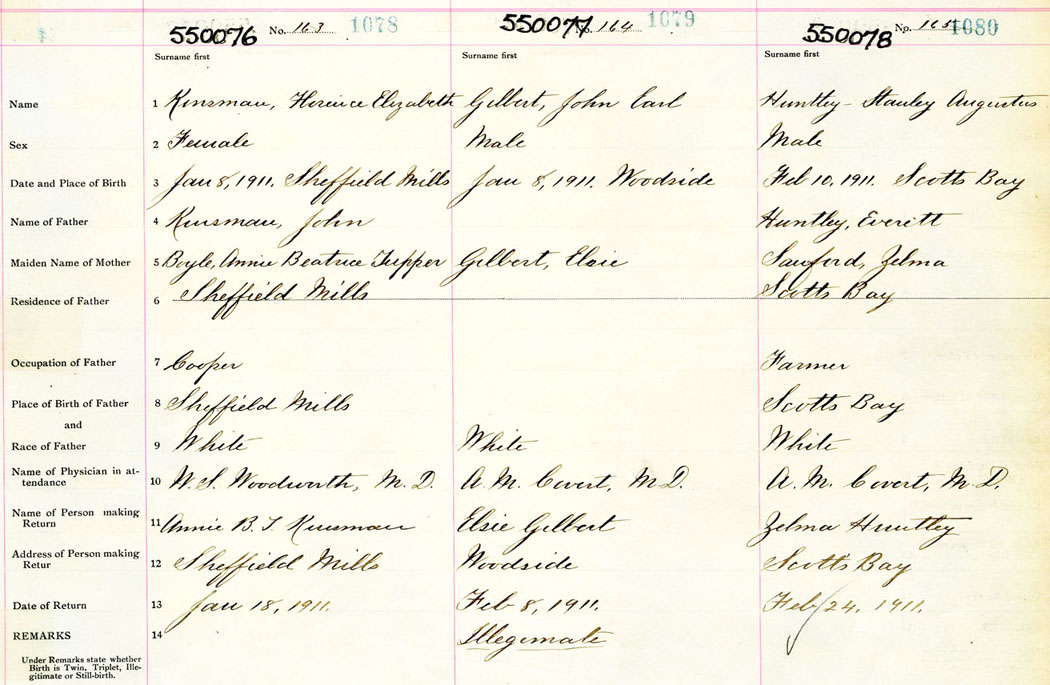 550076 No. 163 1078 550077 No. 164 1079 550078 No. 165 1080
Surname first Surname first Surname first
Name 1 Kinsman, Florence Elizabeth Gilbert, John Earl Huntley - Stanley Augustus
Sex 2 Female Male Male
Date and Place of Birth 3 Jan 8, 1911. Sheffield Mills Jan 8, 1911. Woodside Feb 10, 1911. Scotts Bay
Name of Father 4 Kinsman, John Huntley, Everett
Maiden Name of Mother 5 Boyle, Annie Beatrice Tupper Gilbert, Elsie Sanford, Zelma
Residence of Father 6 Sheffield Mills Scotts Bay
Occupation of Father 7 Cooper Farmer
Place of Birth of Father 8 Sheffield Mills Scotts Bay
and
Race of Father 9 White White White
Name of Physician in at-
tendance 10 W. S. Woodworth, M. D. A. M. Covert, M D. A. M. Covert, M. D.
Name of Person making
Return 11 Annie B. T. Kinsman Elsie Gilbert Zelma Huntley
Address of Person making
Retur 12 Sheffield Mills Woodside Scott's Bay
Date of Return 13 Jan 18, 1911. Feb 8, 1911. Feb 24, 1911.
REMARKS 14 Illegimate
Under Remarks state whether
Birth is Twin, Triplet, Ille-
gitimate or Still-birth.